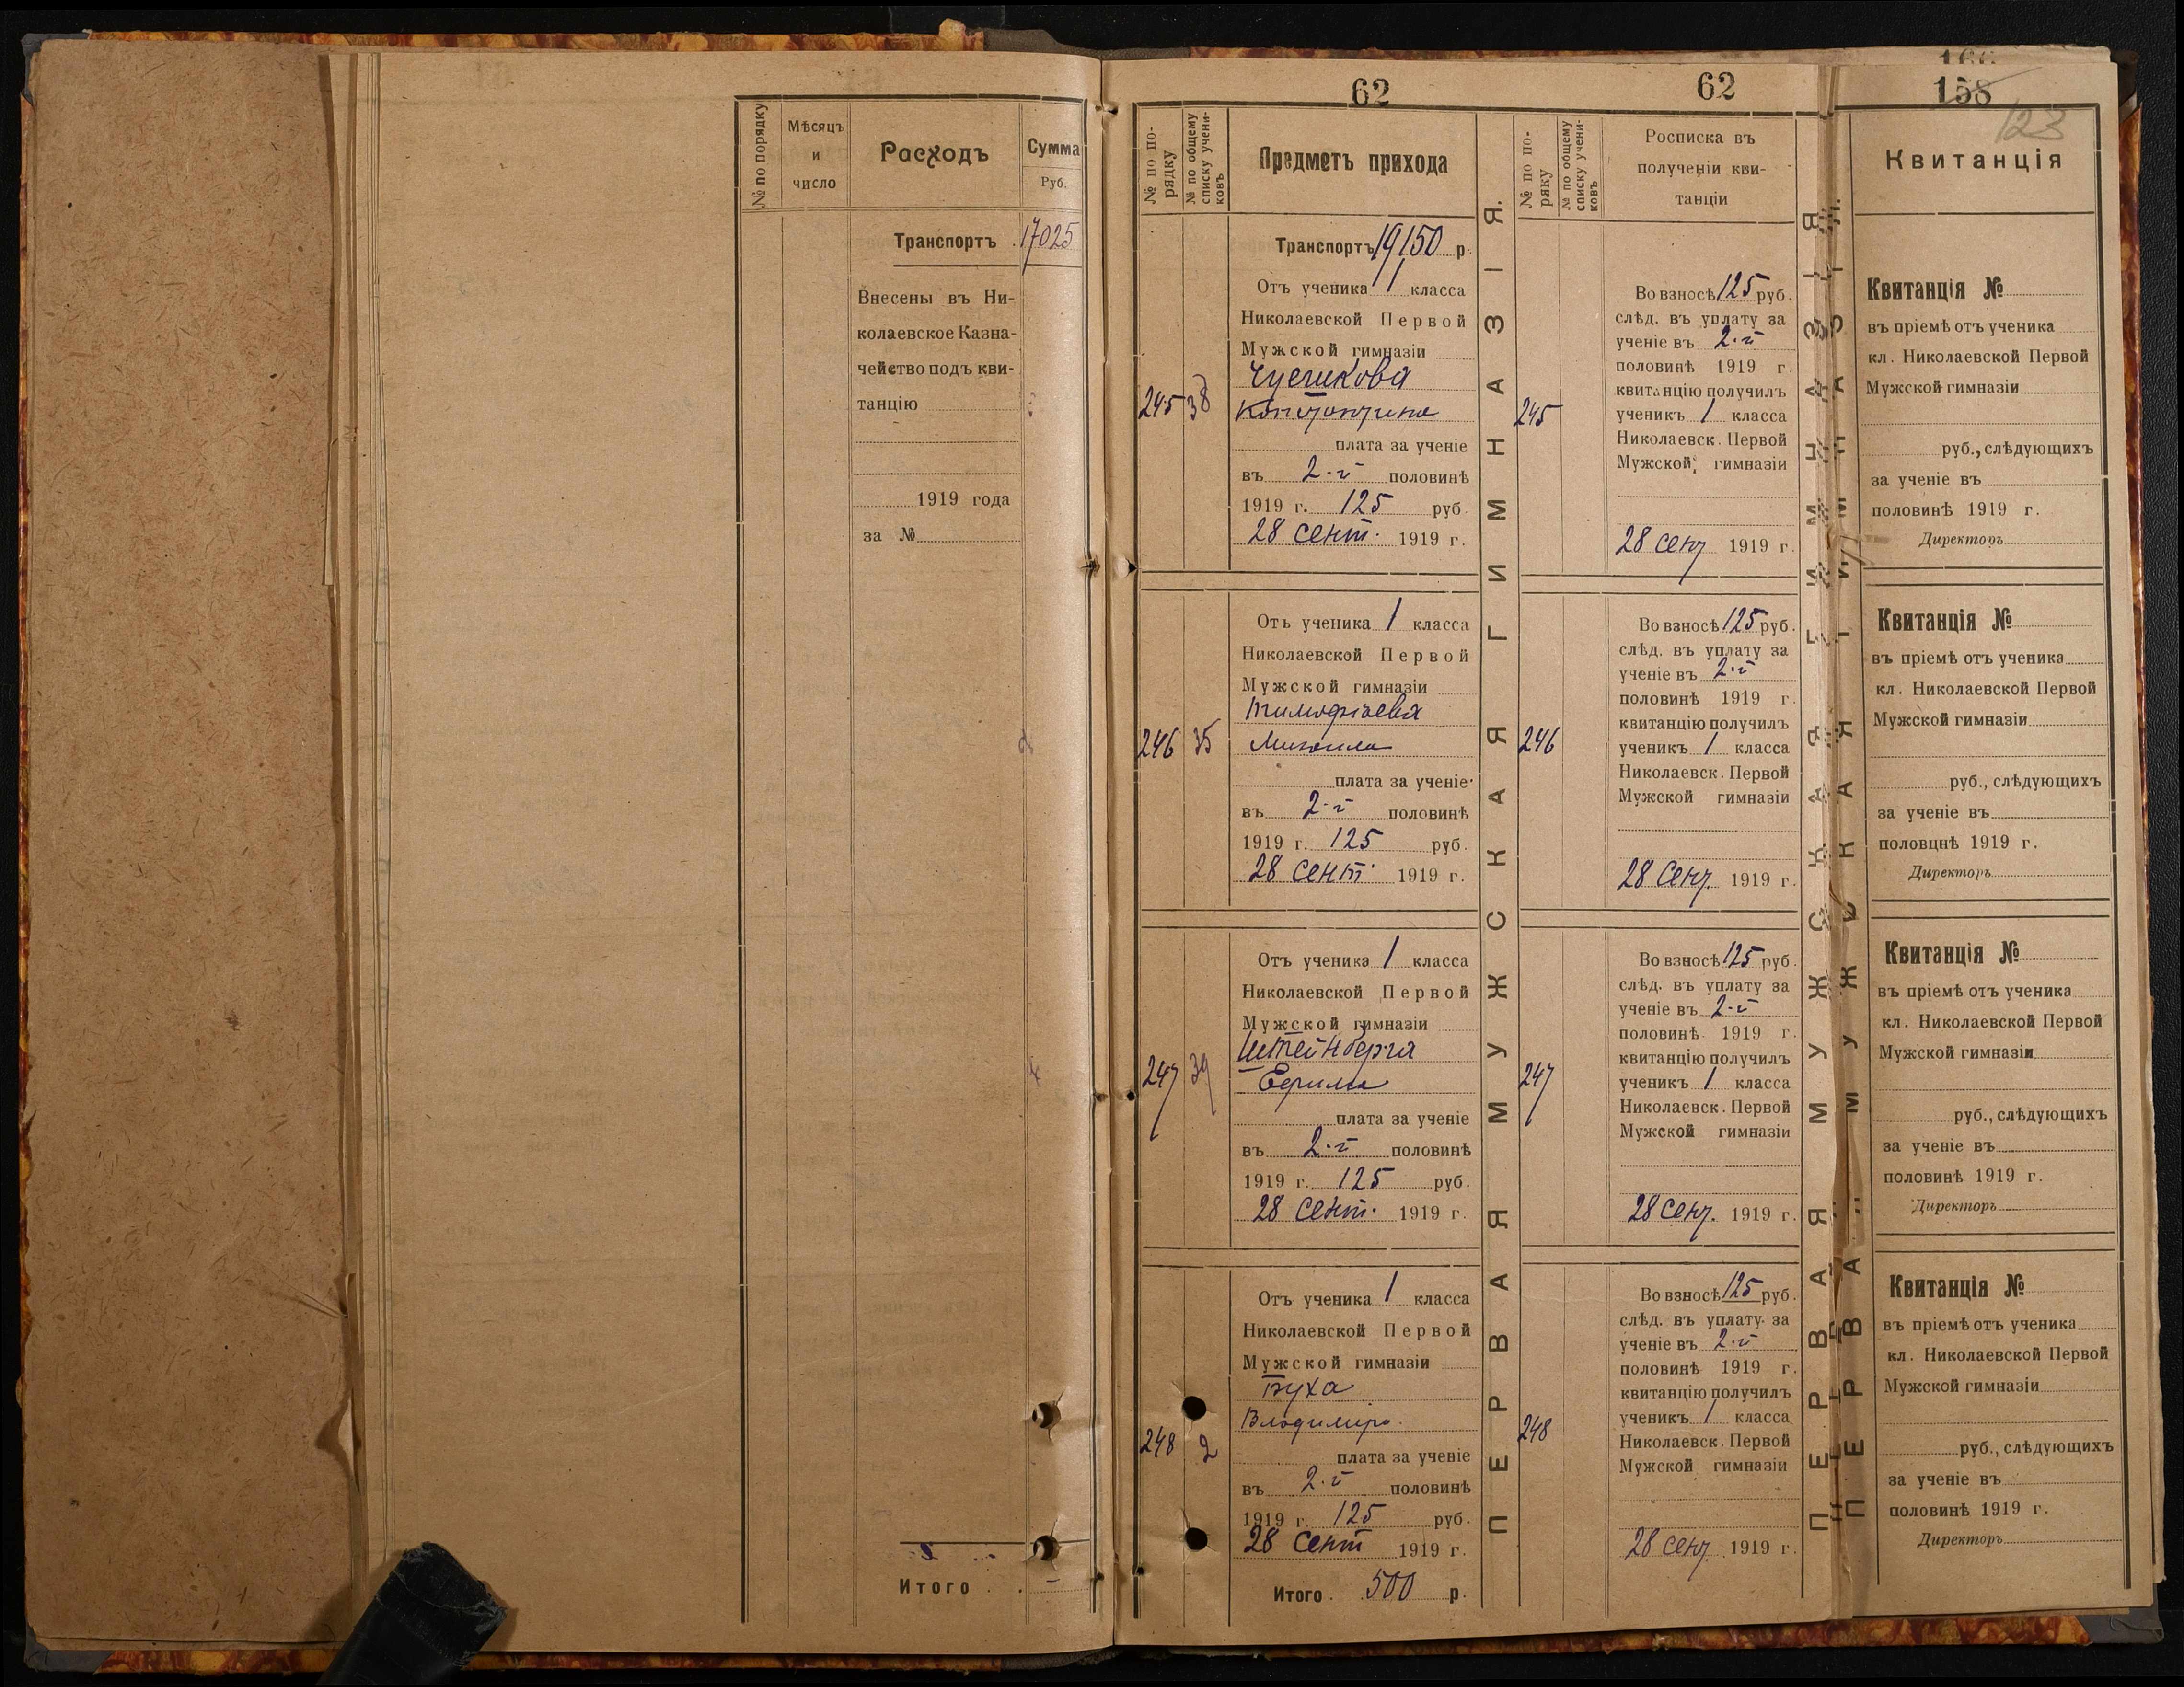 № по порядку
Мѣсяцъ
и
число
Расходъ
Сумма
Руб.
Транспортъ 17025
Внесены въ Ни-
колаевское Казна-
чейство подъ кви-
танцію
1919 года
за №
Итого
62
№ по по-
рядку
№ по общему
списку учени-
ковъ
Предметъ прихода
Транспортъ 19150 р.
Отъ ученика 1 класса
Николаевской Первой
Мужской гимназіи
245 38
Константина
плата за ученіе
въ 2-й половинѣ
1919 г. 125 руб.
28 сент. 1919 г.
Отъ ученика 1 класса
Николаевской Первой
Мужской гимназіи
Тимофѣева
246 35 Михаила
плата за ученіе
въ 2-й половинѣ
1919 г. 125 руб.
28 сент. 1919 г.
Отъ ученика 1 класса
Николаевской Первой
Мужской гимназіи
Штейнберга
247 39 Ефима
плата за ученіе
въ 2-й половинѣ
1919 г. 125 руб.
28 сент. 1919 г.
Отъ ученика 1 класса
Николаевской Первой
Мужской гимназіи
Буха
Владиміра
248 2
плата за ученіе
въ 2-й половинѣ
1919 г. 125 руб.
28 сент 1919 г.
Итого 500 р.
ПЕРВАЯ МУЖСКАЯ ГИМНАЗІЯ.
62
№ по по-
ряку
№ по общему
списку учени-
ковъ
Росписка въ
полученіи кви-
танціи
Во взносѣ 125 руб.
слѣд. въ уплату за
ученіе въ 2-й
половинѣ 1919 г.
квитанцію получилъ
245 ученикъ 1 класса
Николаевск. Первой
Мужской гимназіи
28 сент 1919 г.
Во взносѣ 125 руб.
слѣд. въ уплату за
ученіе въ 2-й
половинѣ 1919 г.
квитанцію получилъ
246 ученикъ 1 класса
Николаевск. Первой
Мужской гимназіи
28 сент. 1919 г.
Во взносѣ 125 руб.
слѣд. въ уплату за
ученіе въ 2-й
половинѣ 1919 г.
квитанцію получилъ
247 ученикъ 1 класса
Николаевск. Первой
Мужской гимназіи
28 сент. 1919 г.
Во взносѣ 125 руб.
слѣд. въ уплату за
ученіе въ 2-й
половинѣ 1919 г.
квитанцію получилъ
248 ученикъ 1 класса
Николаевск. Первой
Мужской гимназіи
28 сент. 1919 г.
ПЕРВАЯ МУЖСКАЯ ГИМНАЗІЯ
158
123
Квитанція
Квитанція №
въ пріемѣ отъ ученика
кл. Николаевской Первой
Мужской гимназіи
руб., слѣдующихъ
за ученіе въ
половинѣ 1919 г.
Директоръ
Квитанція №
въ пріемѣ отъ ученика
кл. Николаевской Первой
Мужской гимназіи
руб., слѣдующихъ
за ученіе въ
половцнѣ 1919 г.
Директоръ
Квитанція №
въ пріемѣ отъ ученика
кл. Николаевской Первой
Мужской гимназіи
руб., слѣдующихъ
за ученіе въ
половинѣ 1919 г.
Директоръ
Квитанція №
въ пріемѣ отъ ученика
кл. Николаевской Первой
Мужской гимназіи
руб., слѣдующихъ
за ученіе въ
половинѣ 1919 г.
Директоръ